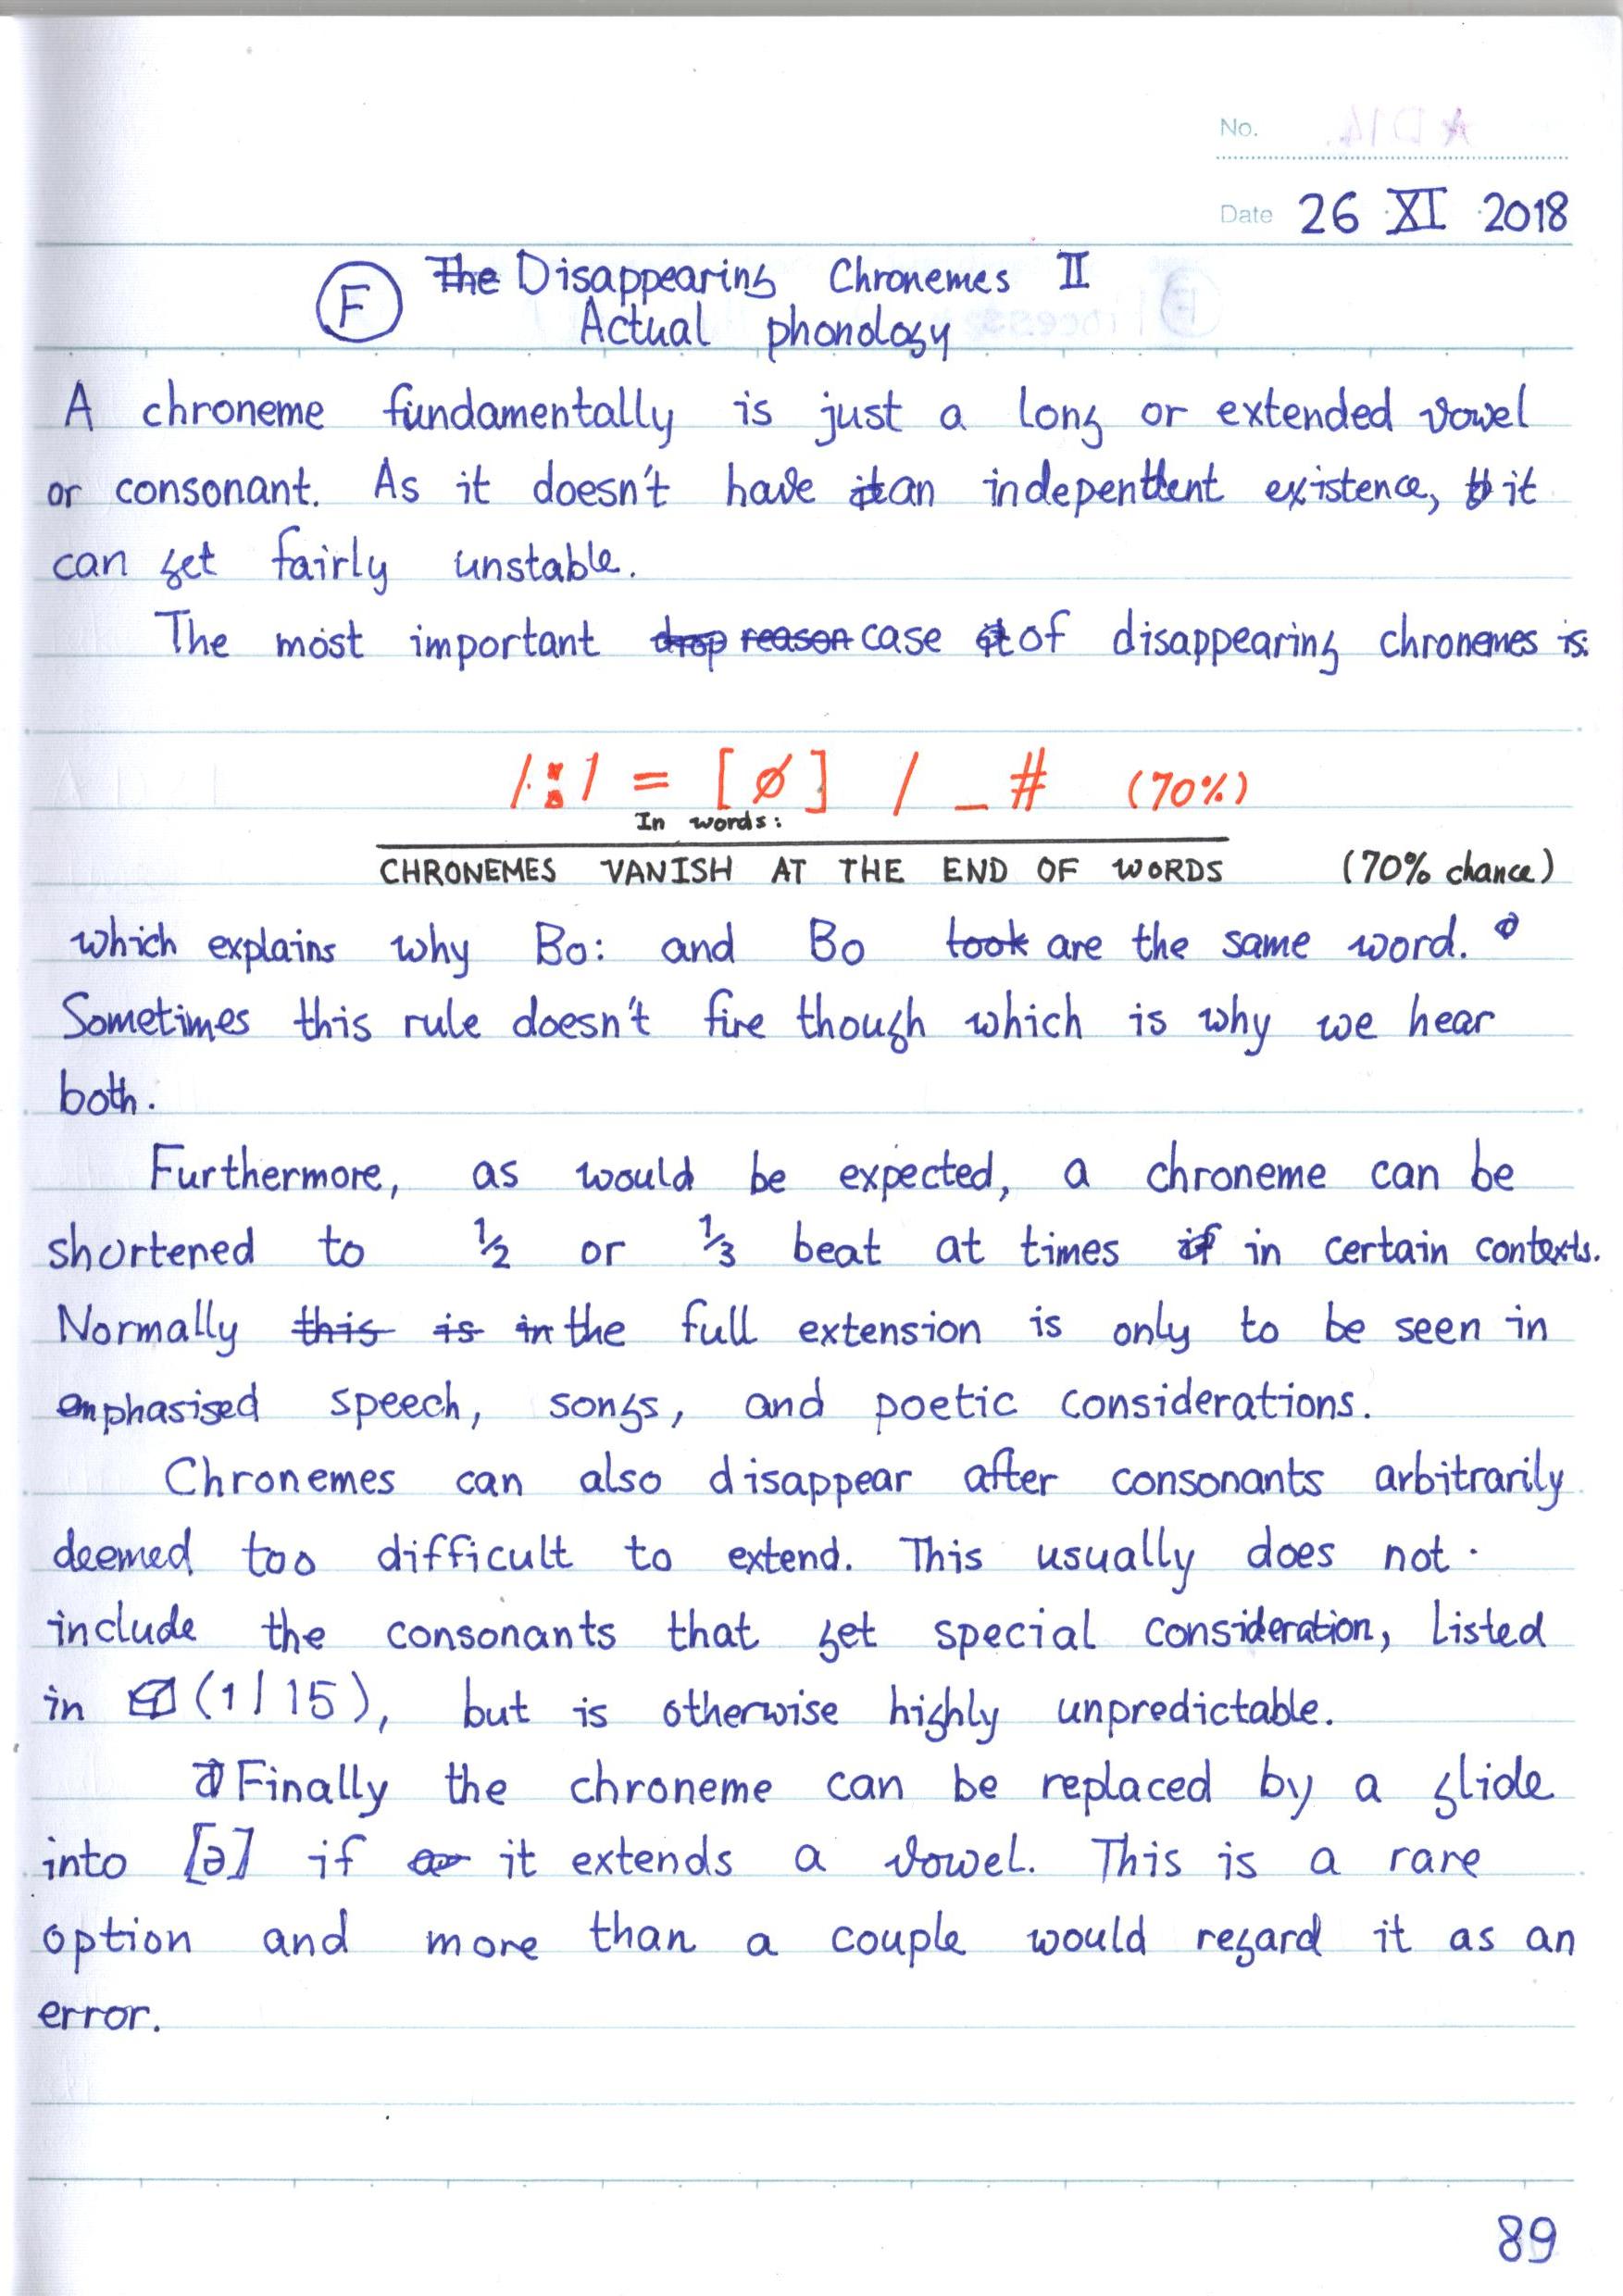 No.
Date 26 XI 2018
F The Disappearing Chronemes II
Actual phonology
A chroneme fundamentally is just a long or extended vowel
or consonant. As it doesn't have an independent existence, it
can get fairly unstable.
The most important drop reason case of disappearing chronemes is:
/ː/ = [ø] / _ # (70%)
In words:
CHRONEMES VANISH AT THE END OF WORDS (70% chance)
which explains why Bo: and Bo took are the same word.
Sometimes this rule doesn't fire though which is why we hear
both.
Furthermore, as would be expected, a chroneme can be
shortened to 1/2 or 1/3 beat at times if in certain contexts.
Normally this is in the full extension is only to be seen in
emphasised speech, songs, and poetic considerations.
Chronemes can also disappear after consonants arbitrarily
deemed too difficult to extend. This usually does not
include the consonants that get special consideration, listed
in (1/15), but is otherwise highly unpredictable.
Finally the chroneme can be replaced by a glide
into [ə] if it extends a vowel. This is a rare
option and more than a couple would regard it as an
error.
89